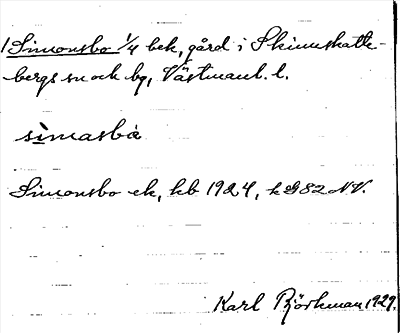 1 Simonsbo 1/4 bek, gård i Skinnskatte-
bergs sn och bg, Västmanl. l.
simasbα
Simonsbo ek, kb 1924, k982 NV.
Karl Björkman 1929.